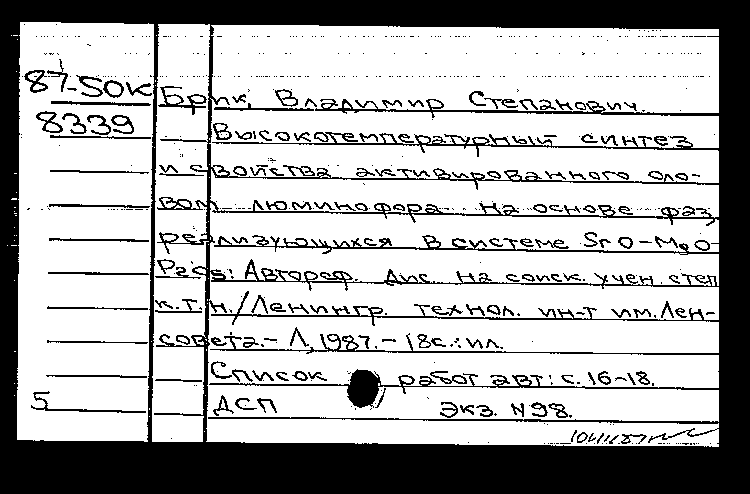 87-50к Брик, Владимир Степанович.
8339 Высокотемпературный синтез
и свойства активированного оло-
вом люминофора на основе фаз,
реализующихся в системе SrO-MgO-
P2O5: Автореф. дис. на соиск. учен. степ
к.т.н./Ленингр. технол. ин-т им. Лен-
совета.- Л, 1987.- 18с.: ил.
Список работ авт: с. 16-18.
5 ДСП Экз. N98.